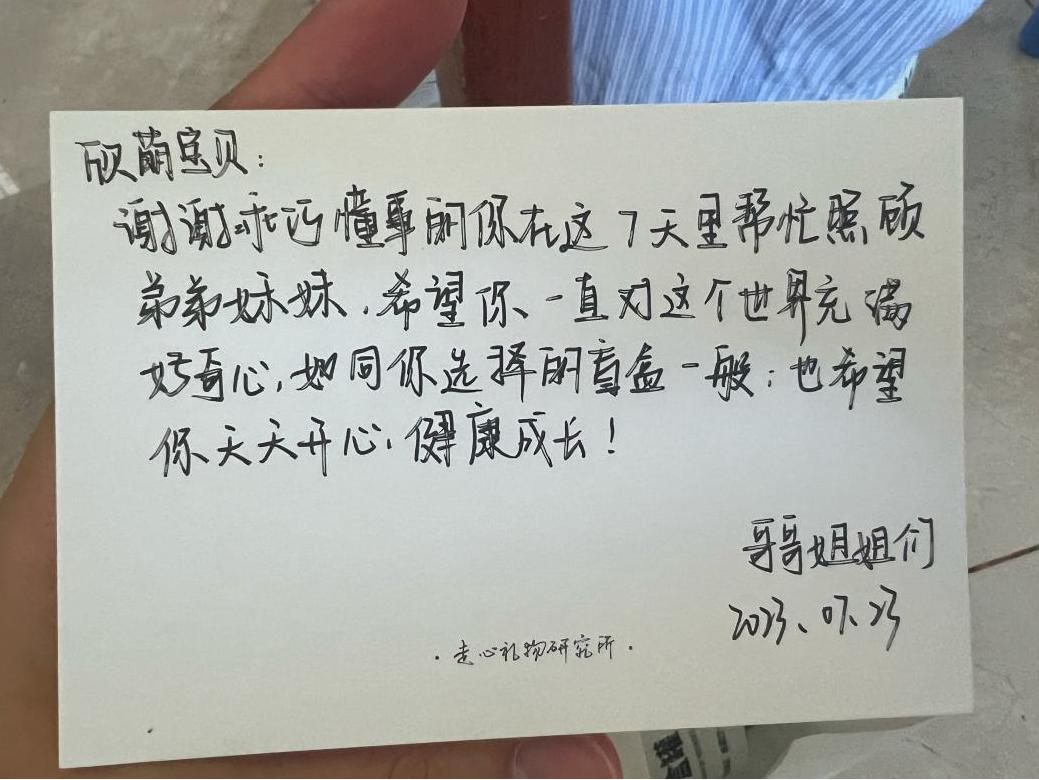 欣萌宝贝：
谢谢乖巧懂事的你在这7天里帮忙照顾
弟弟妹妹，希望你一直对这个世界充满
好奇心，如同你选择的盲盒一般；也希望
你天天开心，健康成长！
哥哥姐姐们
2023、07、23
·走心礼物研究所·